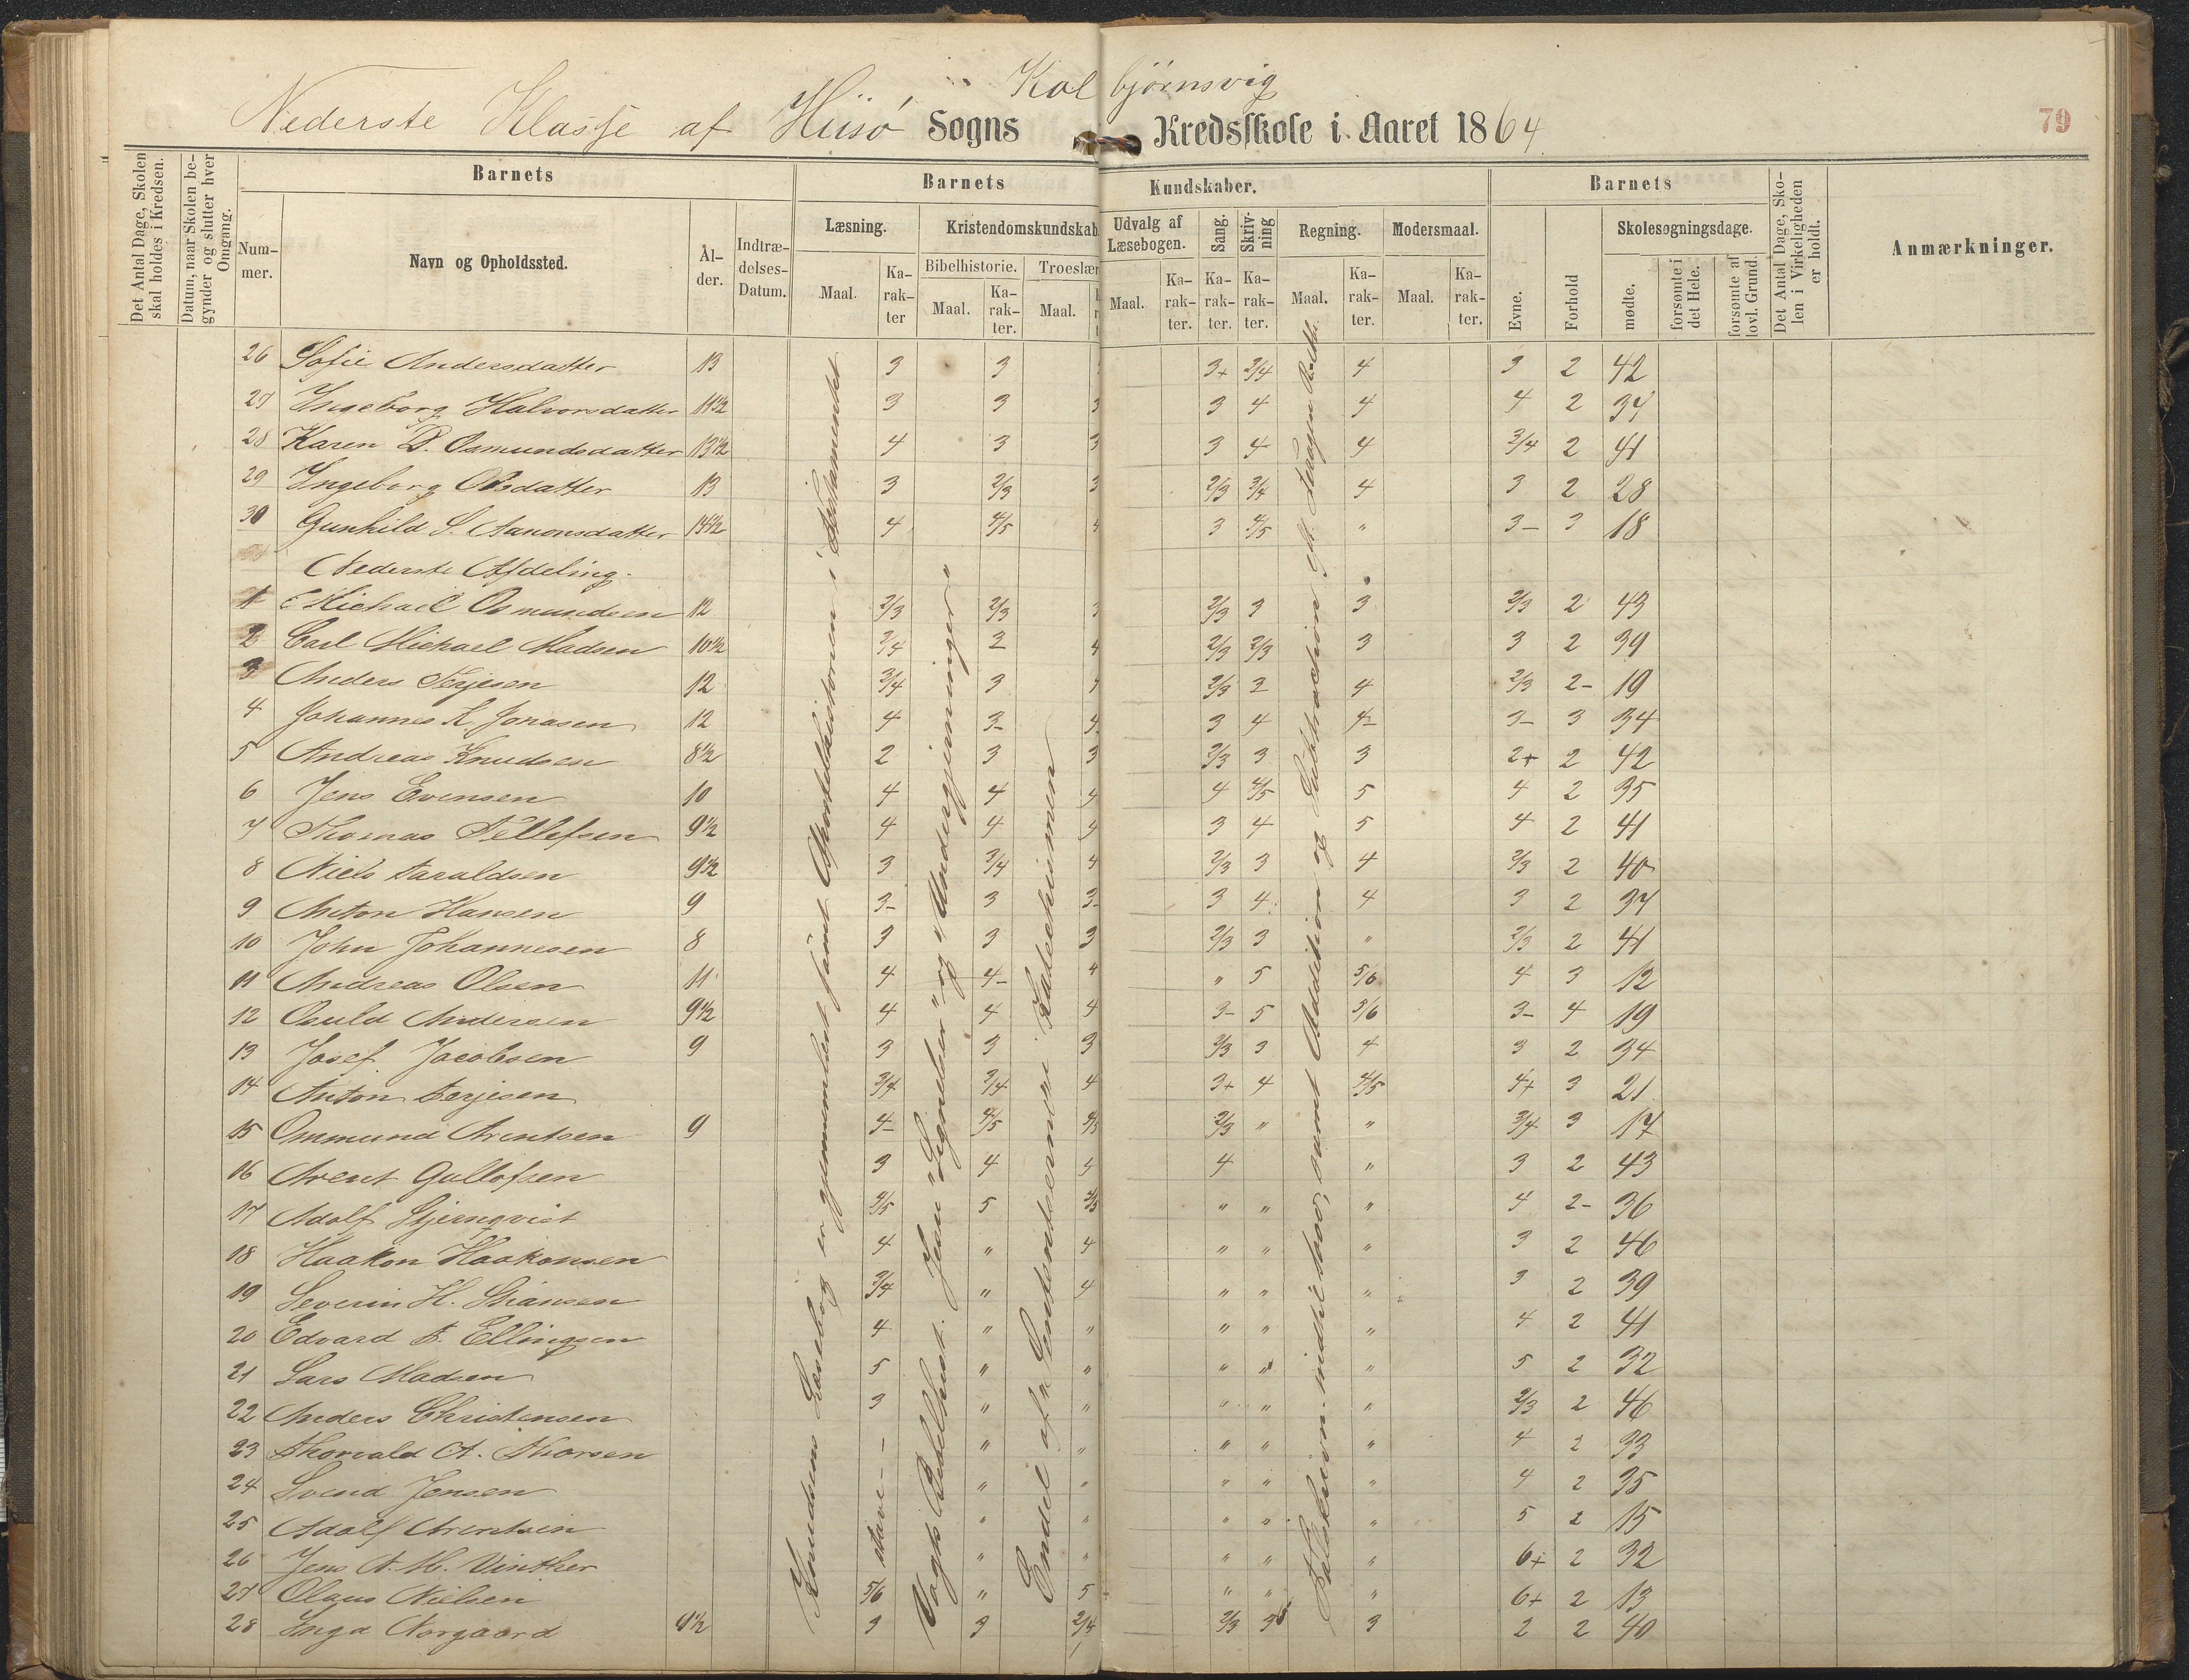 Kolbjørnsvig
Nederste Klasse af Hiisø Sogns Kredsskole i Aaret 1864
79
Det Antal Dage, Skolen skal holdes i Kredsen.
Datum, naar Skolen begynder og slutter hver Omgang.
Barnets
Barnets Kundskaber.
Barnets
Det Antal Dage, Skolen i Virkeligheden er holdt.
Anmærkninger.
Nummer.
Navn og Opholdssted.
Alder.
Indtrædelses-Datum.
Læsning.
Kristendomskundskab.
Udvalg af Læsebogen.
Sang.
Skrivning
Regning.
Modersmaal.
Evne.
Forhold
Skolesøgningsdage.
Bibelhistorie.
Troeslær
Maal.
Karakter
Maal.
Karakter.
Maal.
Maal.
Karakter.
Karakter.
Karakter.
Maal.
Karakter.
Maal.
Karakter.
mødte.
forsømte i det Hele.
forsømte af lovl. Grund.
26 Sofie Andersdatter 13 3 3 3+ 3/4 4 3 2 42
27 Ingeborg Halvorsdatter 11 1/2 3 3 3 3 4 4 4 2 34
28 Karen D. Osmundsdatter 13 1/2 4 3 3 3 4 4 3/4 2 41
29 Ingeborg Olsdatter 13 3 2/3 3 2/3 3/4 4 3 2 28
30 Gunhild S. Aanonsdatter 14 1/2 4 4/5 4 3 4/5 " 3- 3 18
Nederste Afdeling.
1 Michael Osmundsen 12 2/3 2/3 3 2/3 3 3 2/3 2 43
2 Carl Michael Madsen 10 1/2 3/4 2 4 2/3 2/3 3 3 2 39
3 Anders Terjesen 12 3/4 3 2/3 3 4 2/3 2- 19
4 Johannes K. Jonasen 12 4 3- 4 3 4 4- 3- 3 34
5 Andreas Knudsen 8 1/2 2 3 3 2/3 3 3 2+ 2 42
6 Jens Evensen 10 4 4 4 4 4/5 5 4 2 35
7 Thomas Tellefsen 9 1/2 4 4 4 3 4 5 4 2 41
8 Niels Taraldsen 9 1/2 3 3/4 4 2/3 3 4 2/3 2 40
9 Anton Hansen 9 3- 3 3- 3 4 4 3 2 37
10 John Johannesen 8 3 3 3 2/3 3 " 2/3 2 41
11 Andreas Olsen 11 4 4- 4 " 5 5/6 4 3 12
12 Osuld Andersen 9 1/2 4 4 4 3- 5 5/6 3- 4 19
13 Josef Jacobsen 9 3 3 3 2/3 3 4 3 2 34
14 Anton Terjesen 3/4 3/4 4 3+ 4 4/5 4+ 3 21
15 Ommund Arentsen 9 4- 4/5 4/5 2/3 " " 3/4 3 17
16 Arent Gullofsen 3 4 4 4 " 3 2 43
17 Adolf Stjernqvist 4/5 5 4/5 " " " 4 2- 36
18 Haakon Haakonsen 4 " 4 " " " 3 2 46
19 Severin H. Stiansen 3/4 " 4 " " " 3 2 39
20 Edvard T. Ellingsen 4 " " " " " 4 2 41
21 Lars Madsen 5 " " " " " 5 2 32
22 Anders Christensen 3 " " " " " 2/3 2 46
23 Thorvald A. Thorsen - " " " " " 4 2 33
24 Svend Jensen " " " " " 4 2 35
25 Adolf Arentsen stave " " " " " 5 2 15
26 Jens A. M. Vinther " " " " " 6+ 2 32
27 Olaus Nielsen 5/6 " 5 " " " 6+ 2 13
28 Inga Norgaard 9 1/2 3 3 3/4 2/3 3 3 2 2 40
Knudsens Læsebog er gjennemlæst samt Apostelhistorien i Testamentet
Vogts Bibelhist. Jesu "Lignelser" og "Undergjerninger"
Endel af Sentenserne i Katechismen
Talskrivn. indtil 1000, samt Addition og Subtraktion